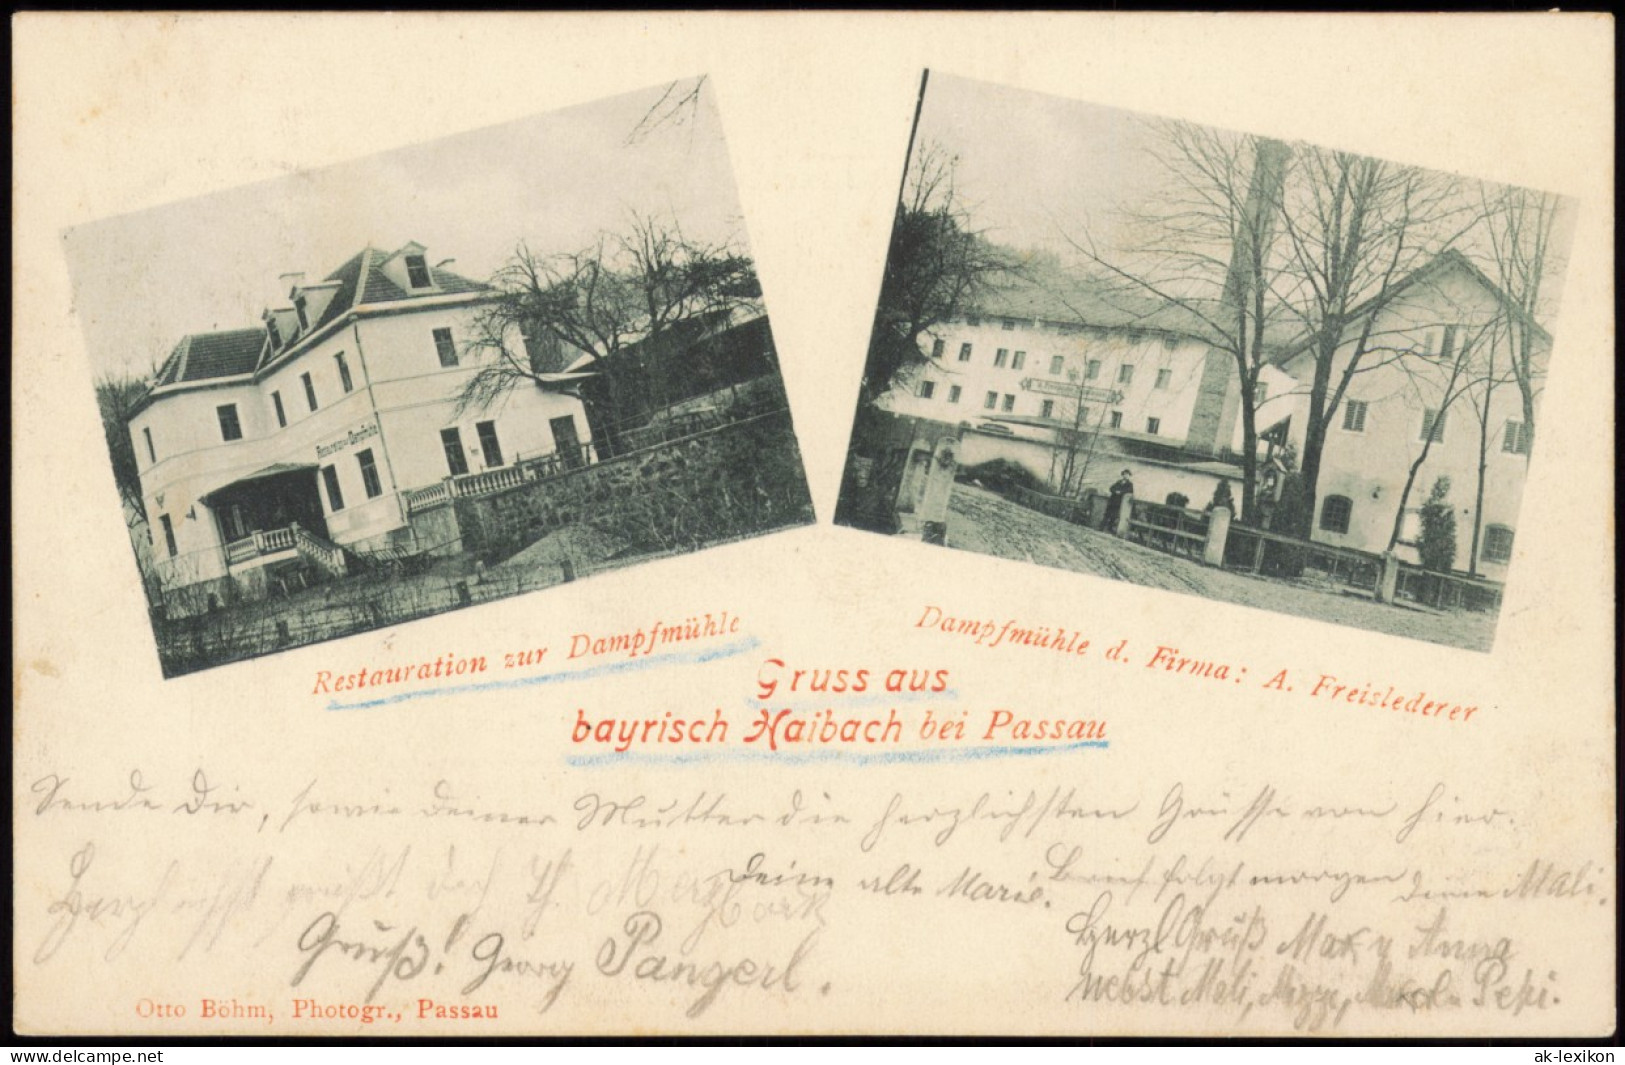 Restauration zur Dampfmühle
Restauration zur Dampfmühle
Dampfmühle d. Firma: A. Freislederer
Gruss aus
bayrisch Haibach bei Passau
Sende Dir, sowie Deiner Mutter die herzlichsten Grüsse von hier.
Deine alte Marie.
Brief folgt morgen Deine Mali.
Herzlichst grüßt dich Th.
Gruß! Georg Pangerl.
Herzl Gruß Max u Anna
nebst Mali, Mizzi, Pepi.
Otto Böhm, Photogr., Passau
https://www.delcampe.net
ak-lexikon